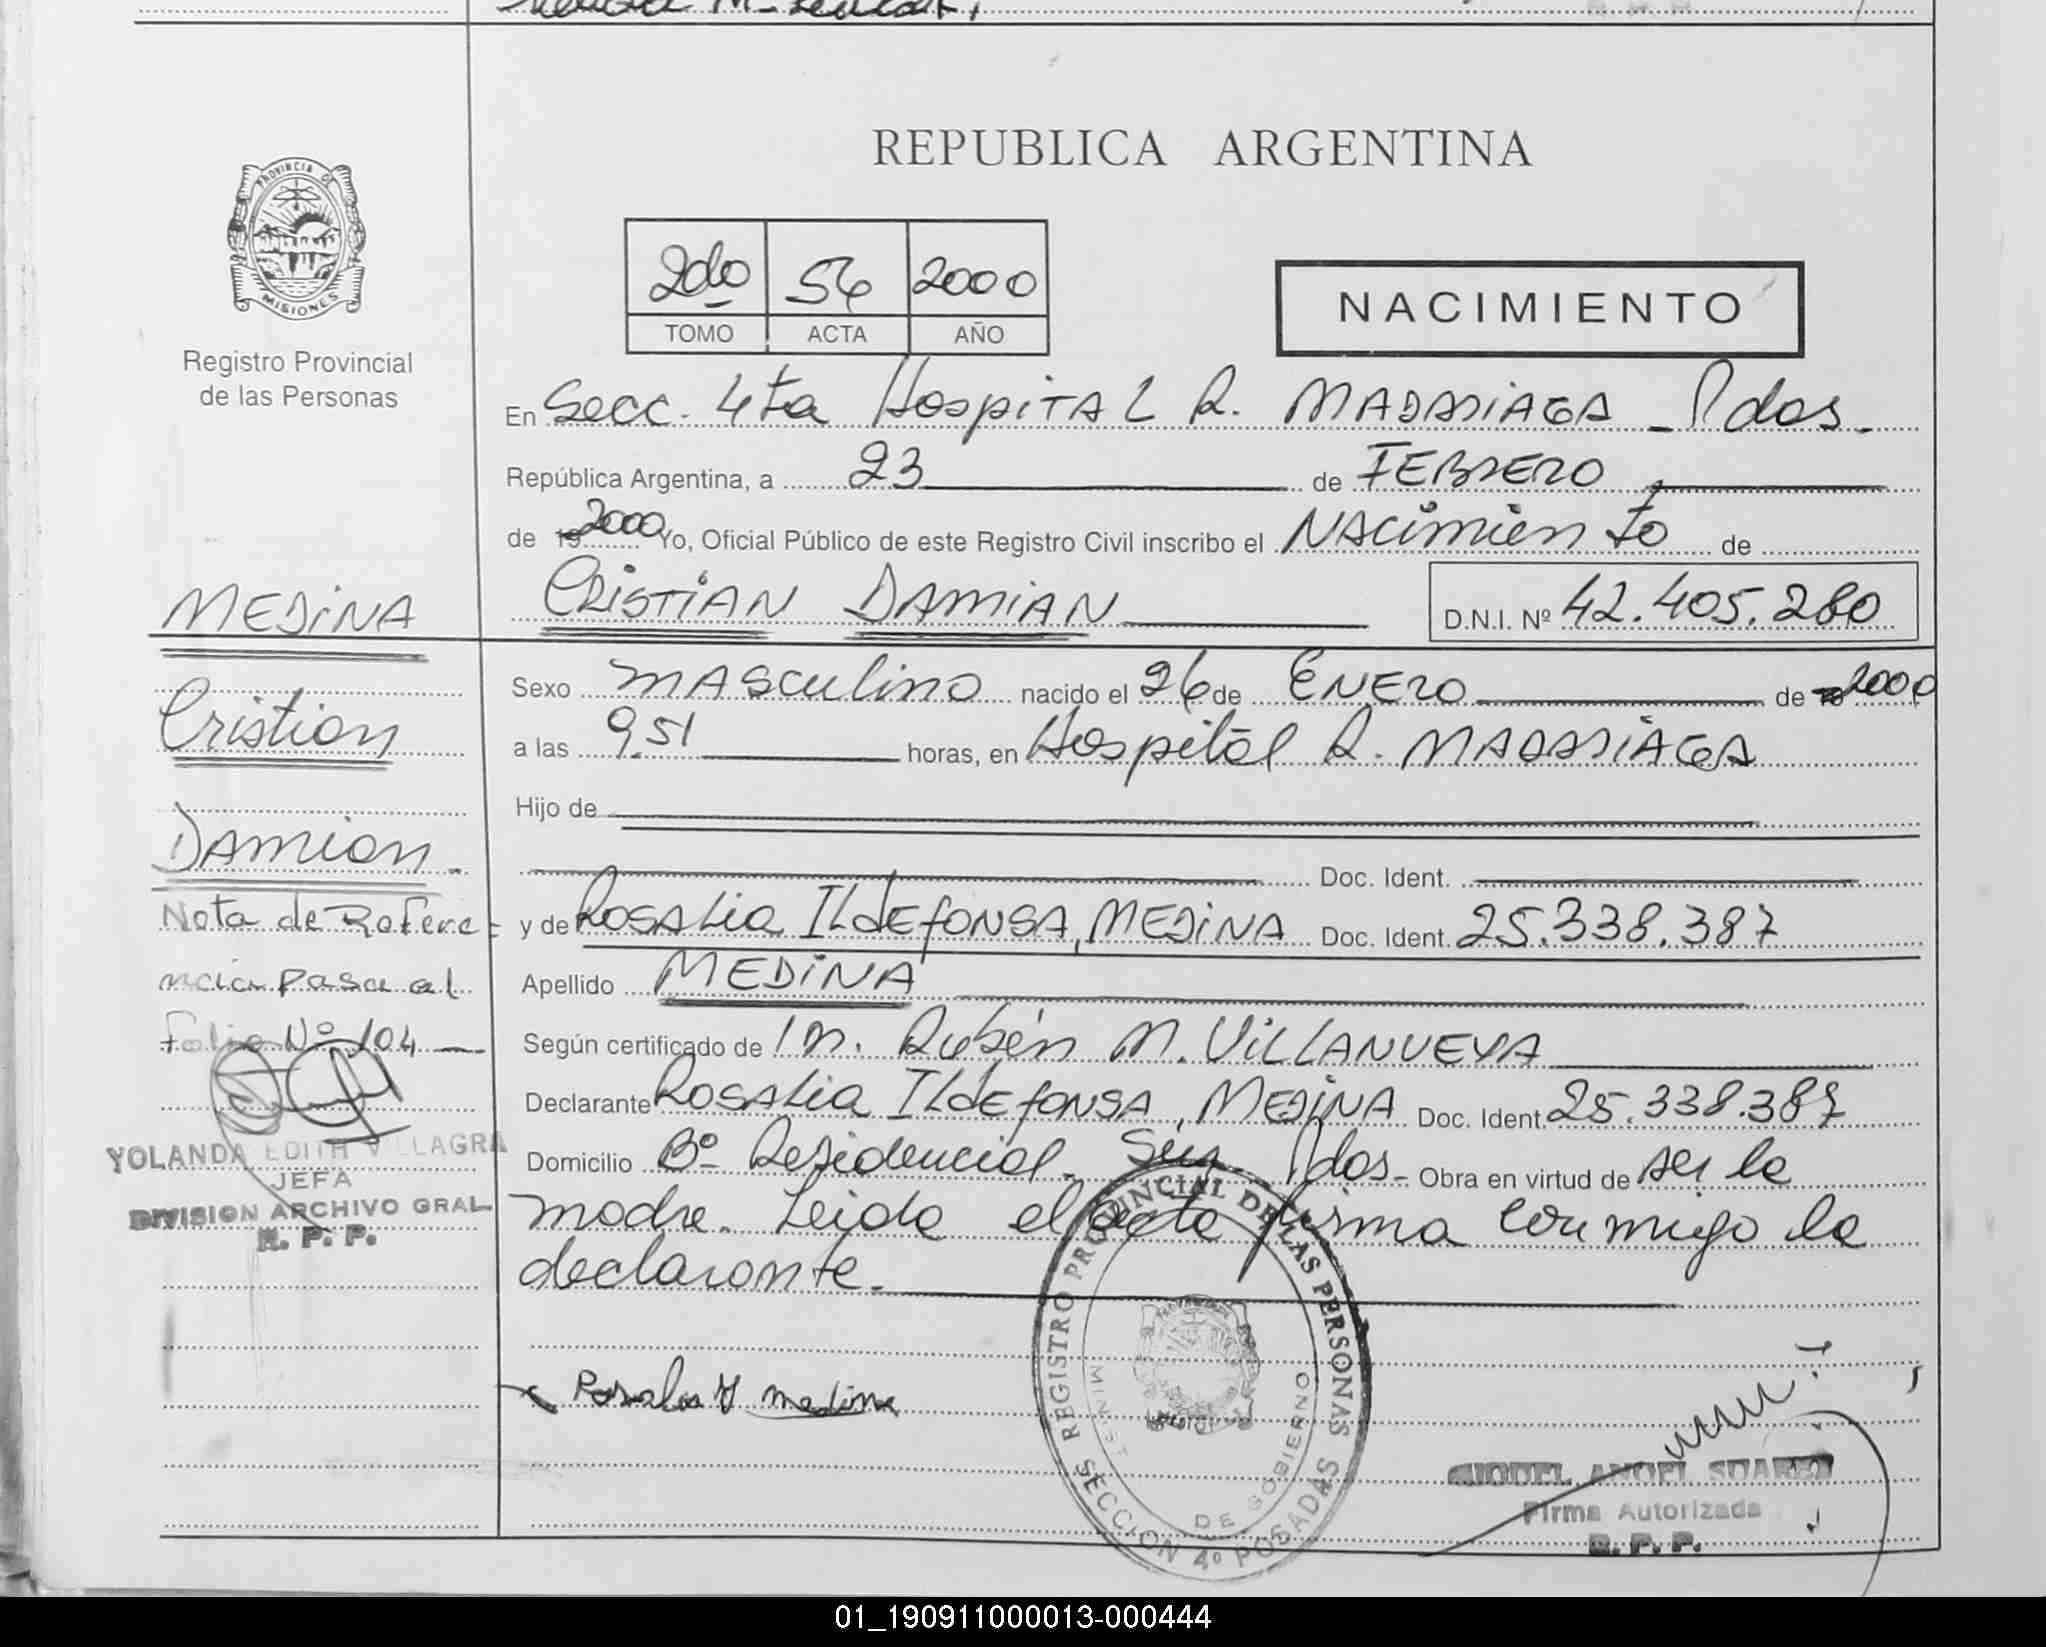 REPUBLICA ARGENTINA
PROVINCIA DE
MISIONES
Registro Provincial
de las Personas
2do 56 2000
TOMO ACTA AÑO
NACIMIENTO
En Secc. 4ta Hospital R. MADARIAGA - Pdas.
República Argentina, a 23 de FEBRERO
de 19 2000 Yo, Oficial Público de este Registro Civil inscribo el NAcimiento de
CRISTIAN DAMIAN D.N.I. Nº 42.405.280
MEDINA
Cristian
Damian.
Nota de Refere-
ncia pasa al
Folio Nº 104
YOLANDA EDITH VILLAGRA
JEFA
DIVISION ARCHIVO GRAL
R. P. P.
Sexo MAsculino nacido el 26 de ENERO de 2000
a las 9,51 horas, en Hospital R. MADARIAGA
Hijo de
Doc. Ident.
y de ROSALia ILdEfONSA, MEDiNA Doc. Ident. 25.338.387
Apellido MEDiNA
Según certificado de Rubén M. ViLLANUEVA
Declarante ROSALia ILdEfONSA, MEDiNA Doc. Ident. 25.338.387
Domicilio Bº Residencial Sur. Pdas- Obra en virtud de ser la
madre. Leida el acta firma conmigo la
declarante.
Rosalia Y medina
REGISTRO PROVINCIAL DE LAS PERSONAS
MINIST DE GOBIERNO
SECCION 4º POSADAS
MIGUEL ANGEL SUAREZ
Firma Autorizada
R. P. P.
01_190911000013-000444